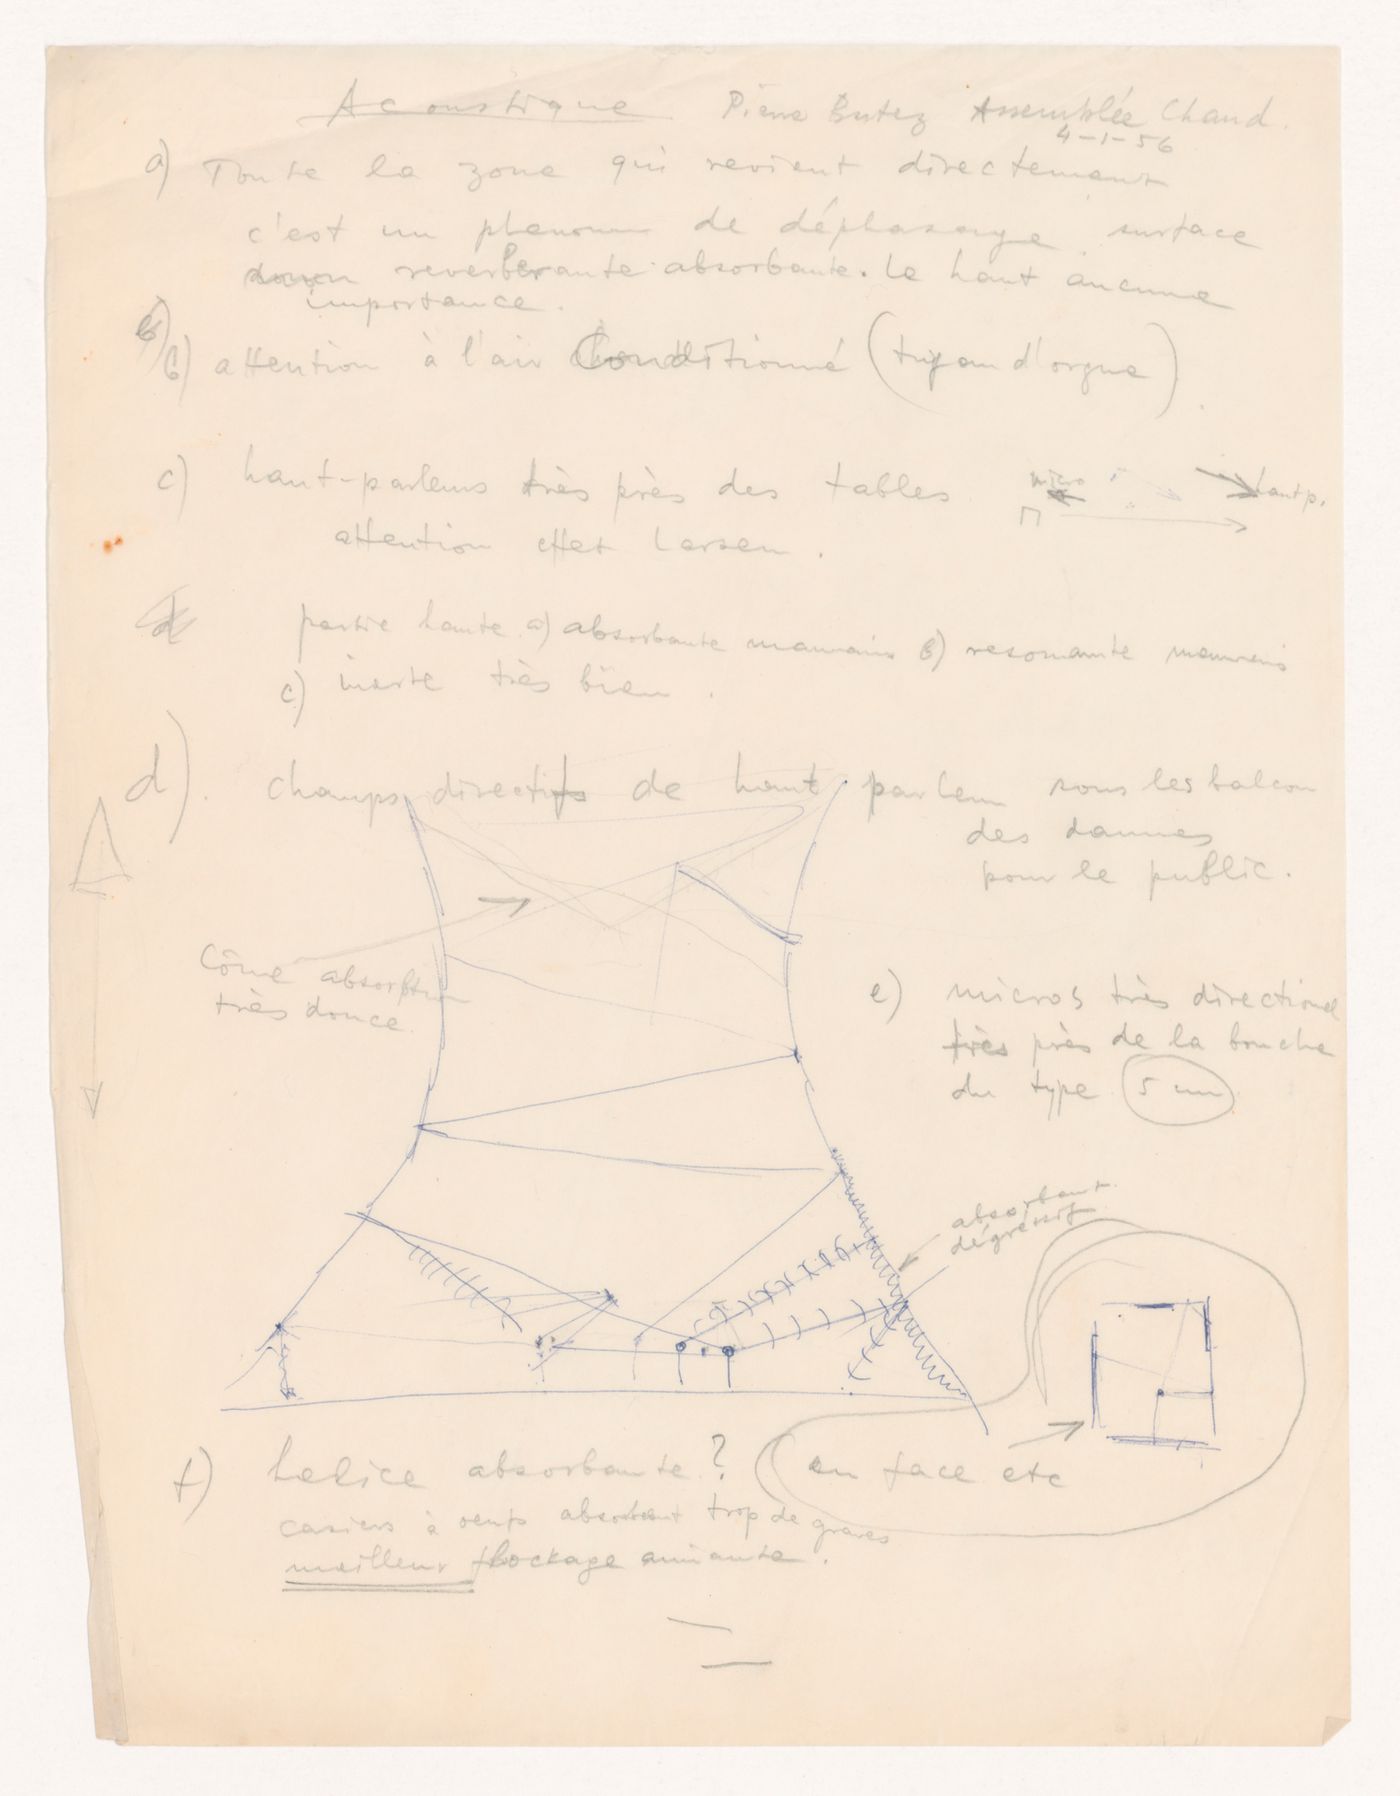 Acoustique Pierre Butez Assemblée Chand.
4-1-56
a) Toute la zone qui revient directement
c'est un phenom de déphasage surface
reverberante absorbante. Le haut aucune
importance.
b) attention à l'air Conditionné (tuyau d'orgue)
c) haut-parleurs très près des tables
micro hautp.
attention effet Larsen.
partie haute a) absorbante mauvais b) resonnante mauvais
c) inerte très bien.
d). champs directifs de haut parleur sous les balcon
des dannes
pour le public.
Cône absorption
très douce.
e) micros très directionel
très près de la bouche
du type 5 mm
absorbant
dégressif
f) helice absorbante? en face etc
casiers à oeufs absorbent trop de graves
meilleur flockage amiante.